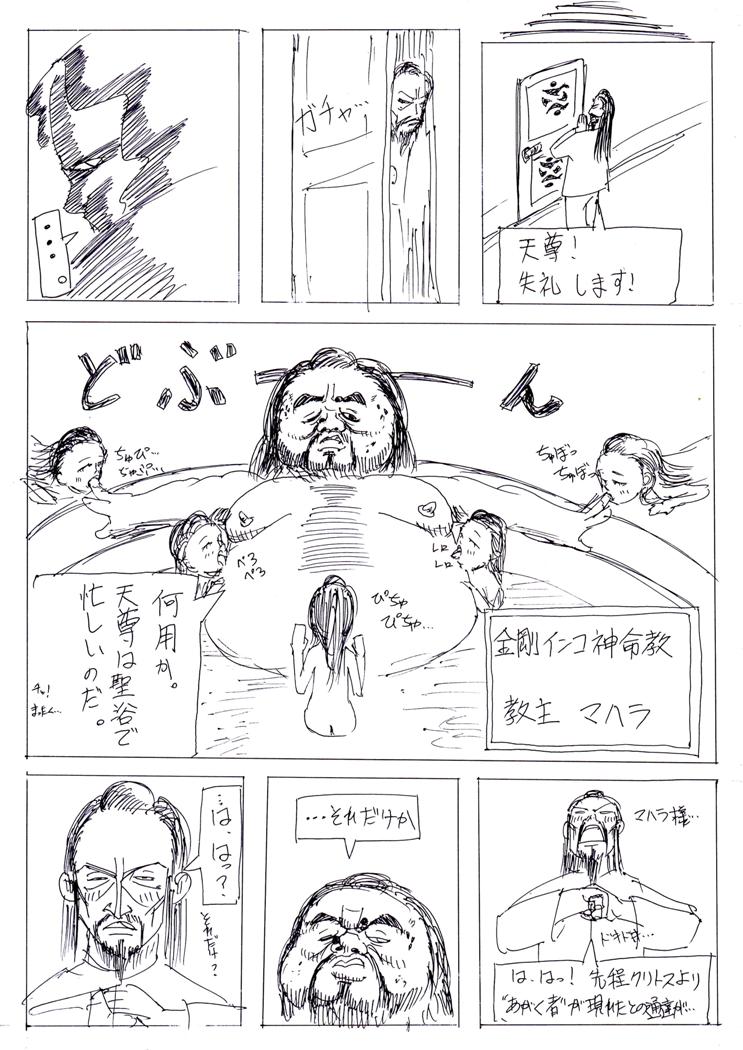 天尊！
失礼します！
ガチャッ
・・・。
どぶーん
ちゅぼっ
ちゅぼっ
レロ
レロ
ぴちゅ
ぴちゅ…
べろ
べろ
ちゅぴ…
金剛インコ神命教
教主 マハラ
何用か。
天尊は聖谷で
忙しいのだ。
チッ！
まったく…
マハラ様…
ドキドキ…
は、はっ！先程クリトスより
“あがく者”が現れたとの通達が…
…それだけか
…は、はっ？
それだけ？